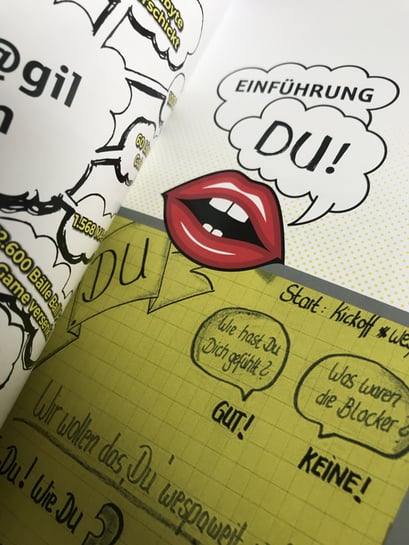 @gil
1.568
2.600 Bälle
Game
EINFÜHRUNG
DU!
DU
Start: Kickoff
Wie hast Du
Dich gefühlt?
GUT!
Was waren
die Blocker?
KEINE!
Wir wollen das "Du" wespaweit
Du! Wie Du
?